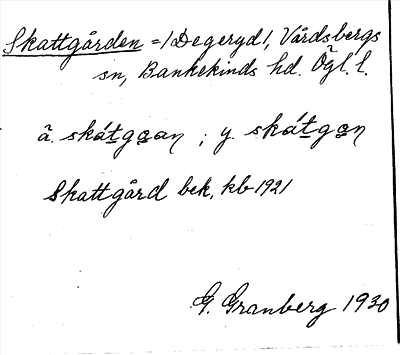 Skattgården = /Degeryd/, Vårdsbergs
sn, Bankekinds hd. Ögl. l.
ä. skát̲ga̲an ; y. skát̲ga̲n
Skattgård bek. kb 1921
G. Granberg 1930